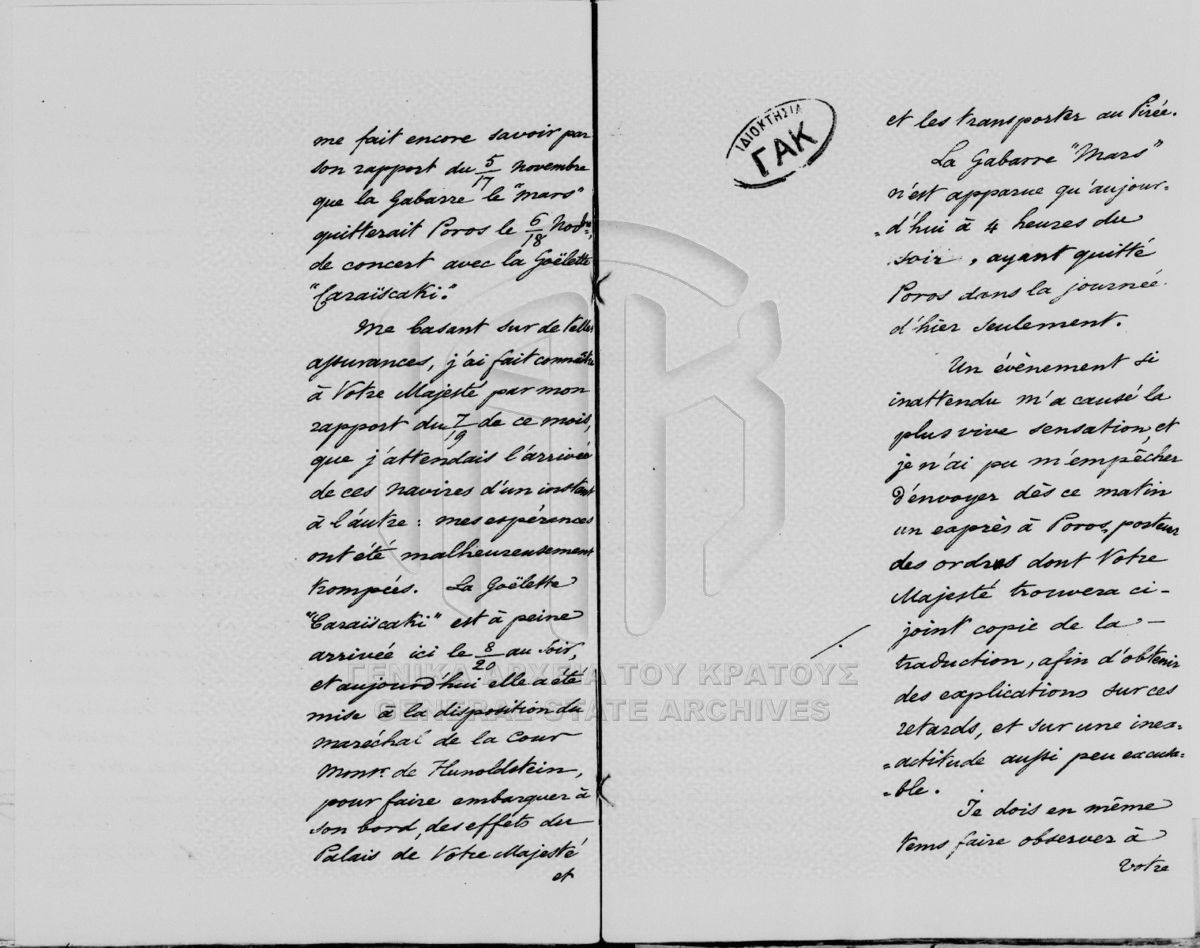 me fait encore savoir par
son rapport du 5/17 Novembre
que la Gabarre le "Mars"
quitterait Poros le 6/18 Novbre,
de concert avec la Goëlette
"Caraïscaki."
Me basant sur de telles
assurances, j'ai fait connaître
à Votre Majesté par mon
rapport du 7/19 de ce mois,
que j'attendais l'arrivée
de ces navires d'un instant
à l'autre : mes espérances
ont été malheureusement
trompées. La Goëlette
"Caraïscaki" est à peine
arrivée ici le 8/20 au soir,
et aujourd'hui elle a été
mise à la disposition du
maréchal de la Cour
Monsr. de Hunoldstein,
pour faire embarquer à
son bord, des effets du
Palais de Votre Majesté
et
ΙΔΙΟΚΤΗΣΙΑ
ΓΑΚ
et les transporter au Pirée.
La Gabarre "Mars"
n'est apparue qu'aujour-
=d'hui à 4 heures du
soir, ayant quitté
Poros dans la journée
d'hier seulement.
Un évènement si
inattendu m'a causé la
plus vive sensation, et
je n'ai pu m'empêcher
d'envoyer dès ce matin
un exprès à Poros, porteur
des ordres dont Votre
Majesté trouvera ci-
joint copie de la -
traduction, afin d'obtenir
des explications sur ces
retards, et sur une inex-
=actitude aussi peu excusa-
=ble.
Je dois en même
tems faire observer à
Votre
ΓΕΝΙΚΑ ΑΡΧΕΙΑ ΤΟΥ ΚΡΑΤΟΥΣ
GENERAL STATE ARCHIVES